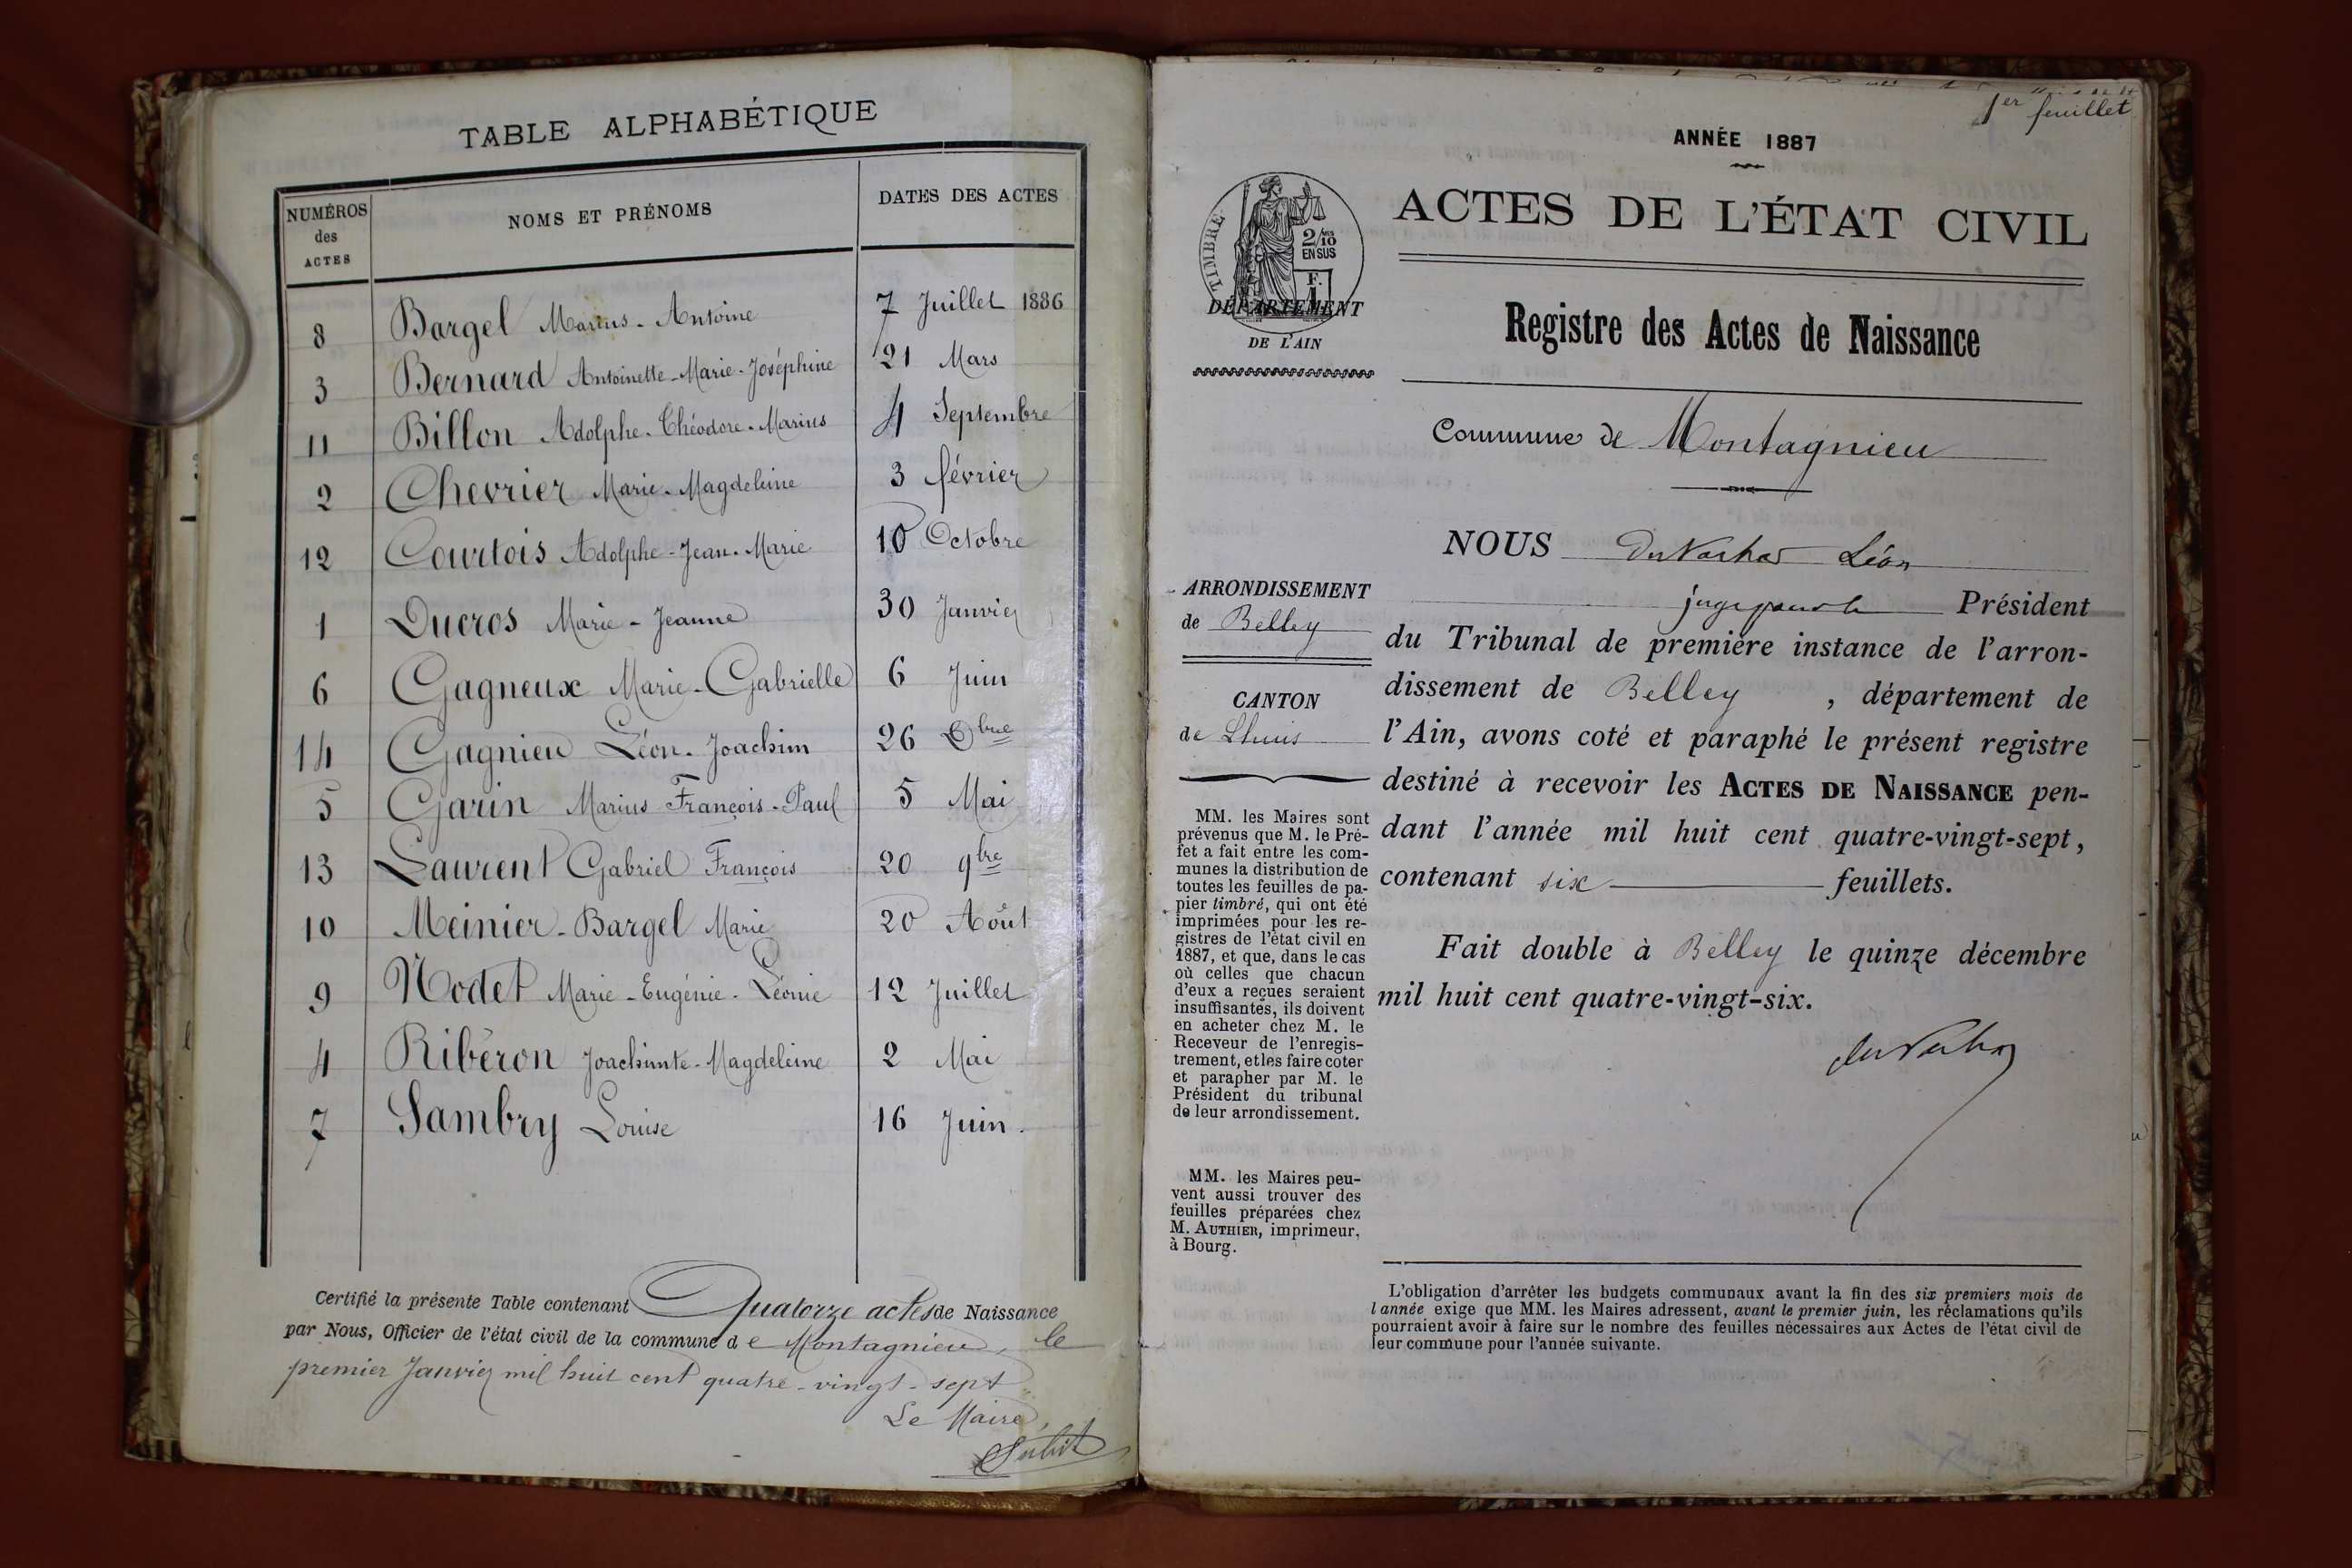 TABLE ALPHABÉTIQUE
NUMÉROS
des
ACTES
NOMS ET PRÉNOMS
DATES DES ACTES
8 Bargel Marius-Antoine 7 Juillet 1886
3 Bernard Antoinette-Marie-Joséphine 21 Mars
11 Billon Adolphe-Théodore-Marius 4 Septembre
2 Chevrier Marie-Magdeleine 3 février
12 Courtois Adolphe-Jean-Marie 10 Octobre
1 Ducros Marie-Jeanne 30 Janvier
6 Gagneux Marie-Gabrielle 6 Juin
14 Gagnieu Léon-Joachim 26 Xbre
5 Garin Marius François-Paul 5 Mai
13 Laurent Gabriel François 20 9bre
10 Meinier-Bargel Marie 20 Août
9 Nodet Marie-Eugénie-Léonie 12 Juillet
4 Ribéron Joachinte-Magdeleine 2 Mai
7 Sambry Louise 16 Juin.
Certifié la présente Table contenant Quatorze actes de Naissance
par Nous, Officier de l'état civil de la commune de Montagnieu, le
premier Janvier mil huit cent quatre-vingt-sept
Le Maire,
1er feuillet
ANNÉE 1887
TIMBRE
2/10
EN SUS
F.
1
ACTES DE L'ÉTAT CIVIL
DÉPARTEMENT
DE L'AIN
Registre des Actes de Naissance
Commune de Montagnieu
ARRONDISSEMENT
de Belley
CANTON
de Lhuis
MM. les Maires sont
prévenus que M. le Pré-
fet a fait entre les com-
munes la distribution de
toutes les feuilles de pa-
pier timbré, qui ont été
imprimées pour les re-
gistres de l'état civil en
1887, et que, dans le cas
où celles que chacun
d'eux a reçues seraient
insuffisantes, ils doivent
en acheter chez M. le
Receveur de l'enregis-
trement, et les faire coter
et parapher par M. le
Président du tribunal
de leur arrondissement.
MM. les Maires peu-
vent aussi trouver des
feuilles préparées chez
M. AUTHIER, imprimeur,
à Bourg.
NOUS Léon
Président
du Tribunal de première instance de l'arron-
dissement de Belley, département de
l'Ain, avons coté et paraphé le présent registre
destiné à recevoir les ACTES DE NAISSANCE pen-
dant l'année mil huit cent quatre-vingt-sept,
contenant six feuillets.
Fait double à Belley le quinze décembre
mil huit cent quatre-vingt-six.
L'obligation d'arrêter les budgets communaux avant la fin des six premiers mois de
l'année exige que MM. les Maires adressent, avant le premier juin, les réclamations qu'ils
pourraient avoir à faire sur le nombre des feuilles nécessaires aux Actes de l'état civil de
leur commune pour l'année suivante.